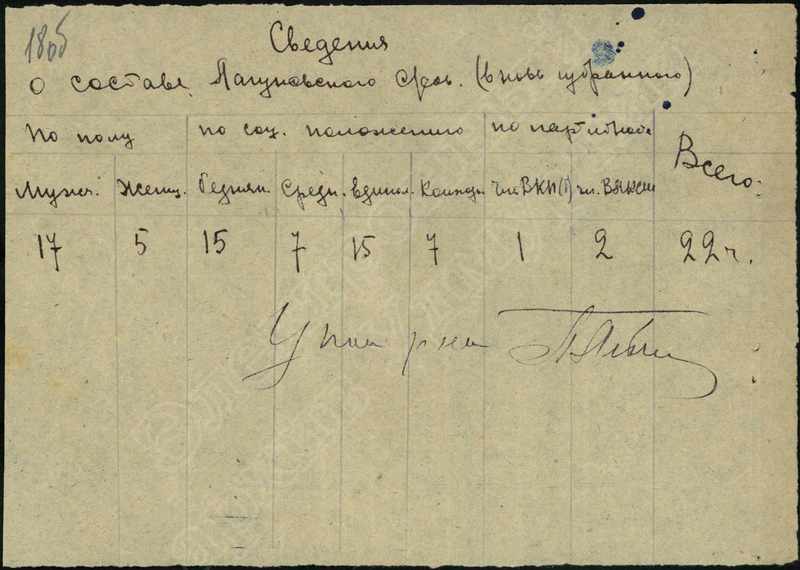 180б
Сведения
о составе Лагуновского с/сов. (вновь избранного)
по полу по соц. положению по партийной Всего:
Мужч. Женщ. Бедняк. Средн. единол. Колхозн. Чл. ВКП(б) чл. ВЛКСМ
17 5 15 7 15 7 1 2 22 ч.